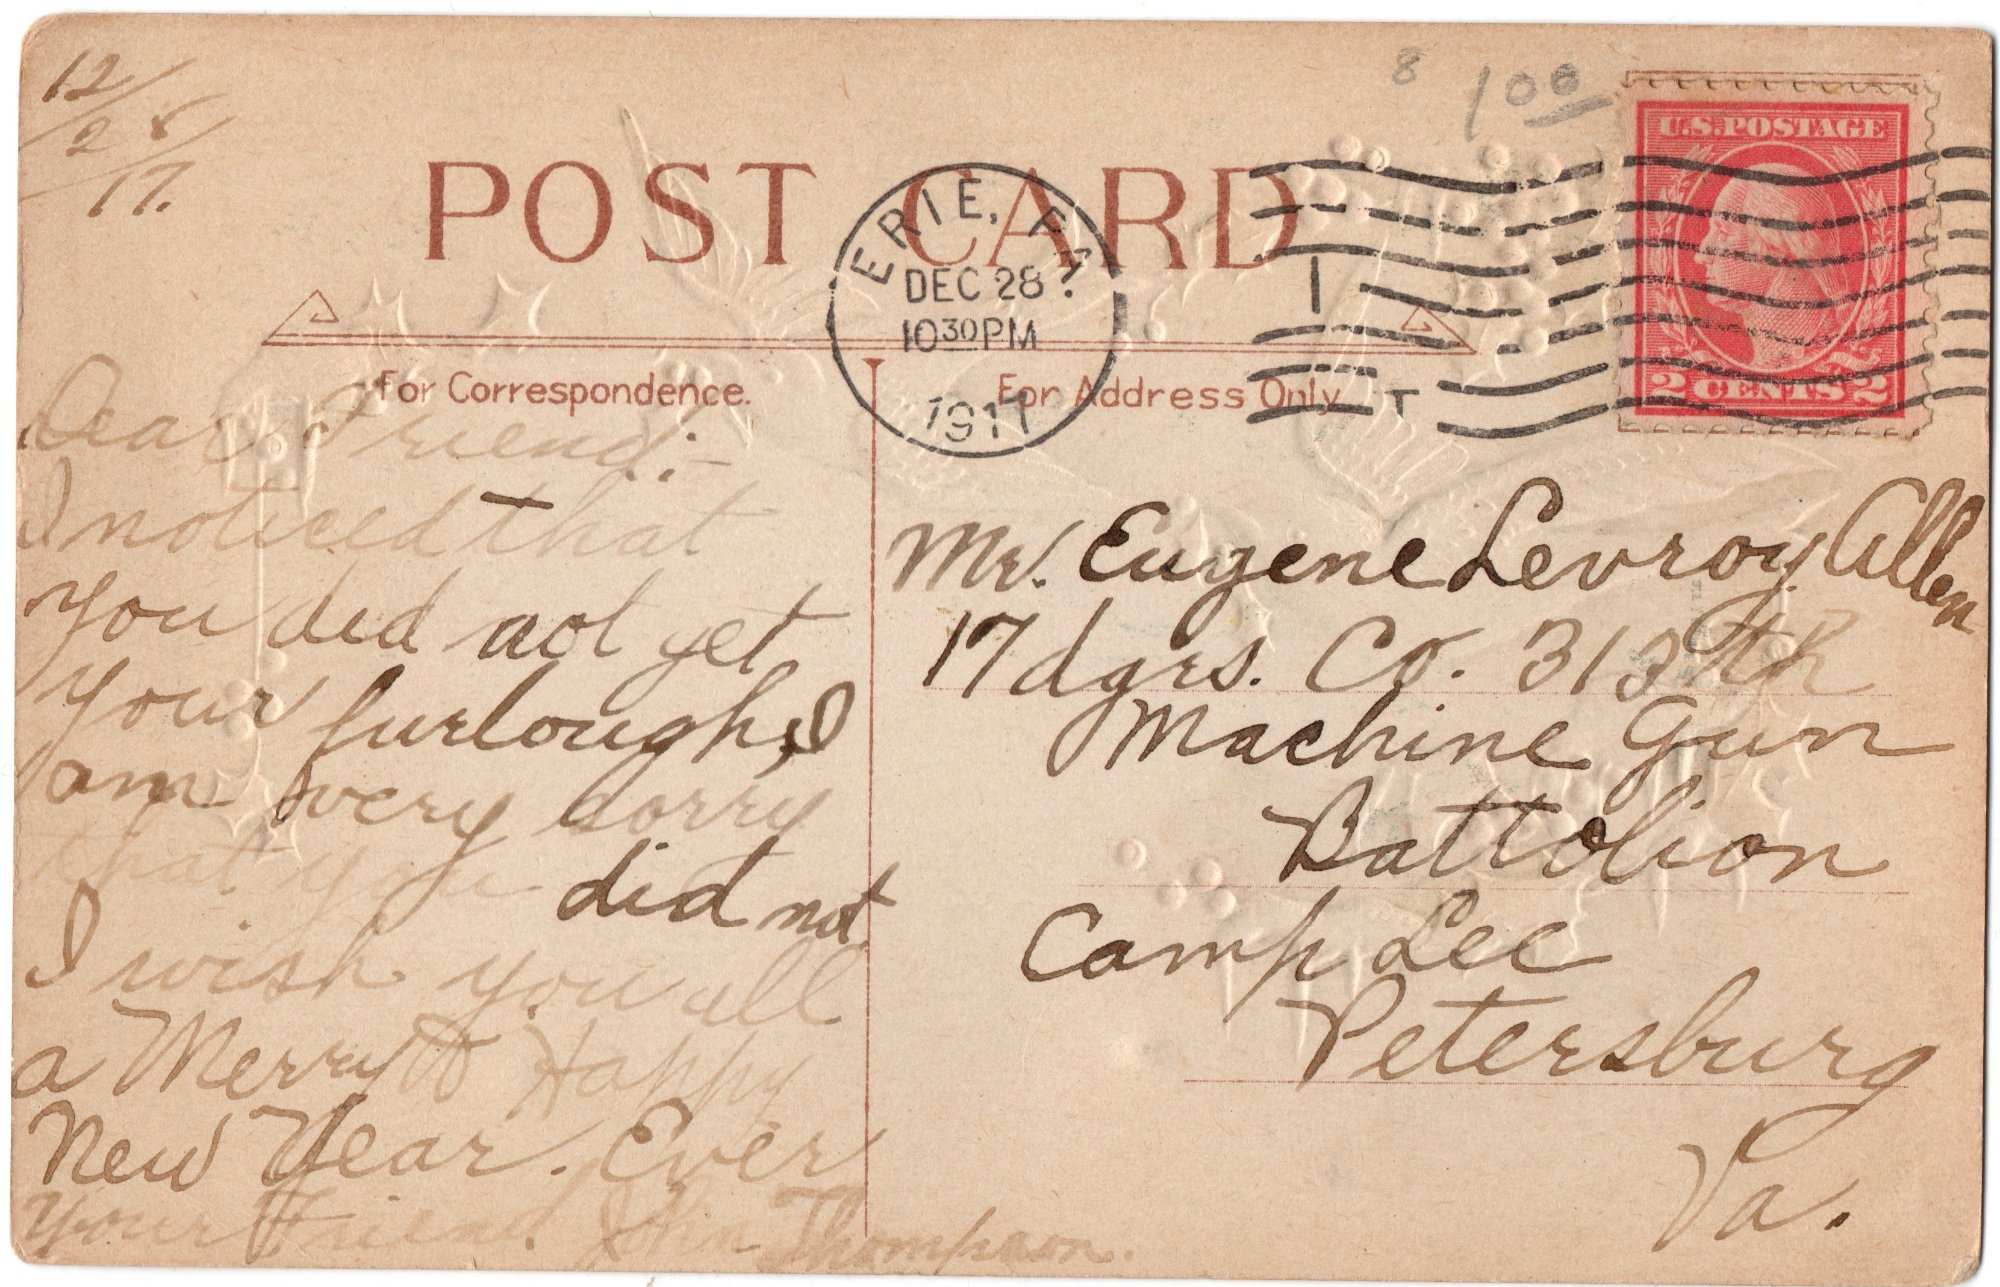 12/28/17.
8 1 00
POST CARD
ERIE, PA.
DEC 28
10 30 PM
1917
U.S. POSTAGE
2 CENTS 2
For Correspondence.
For Address Only
Dear Friend:-
I noticed that
you did not yet
your furlough, I
am very sorry
that you did not.
I wish you all
a Merry & Happy
New Year. Ever
your Friend. John Thompson.
Mr. Eugene Levroy Allen
17 dgrs. Co. 313th
Machine Gun
Battolion
Camp Lee
Petersburg
Va.